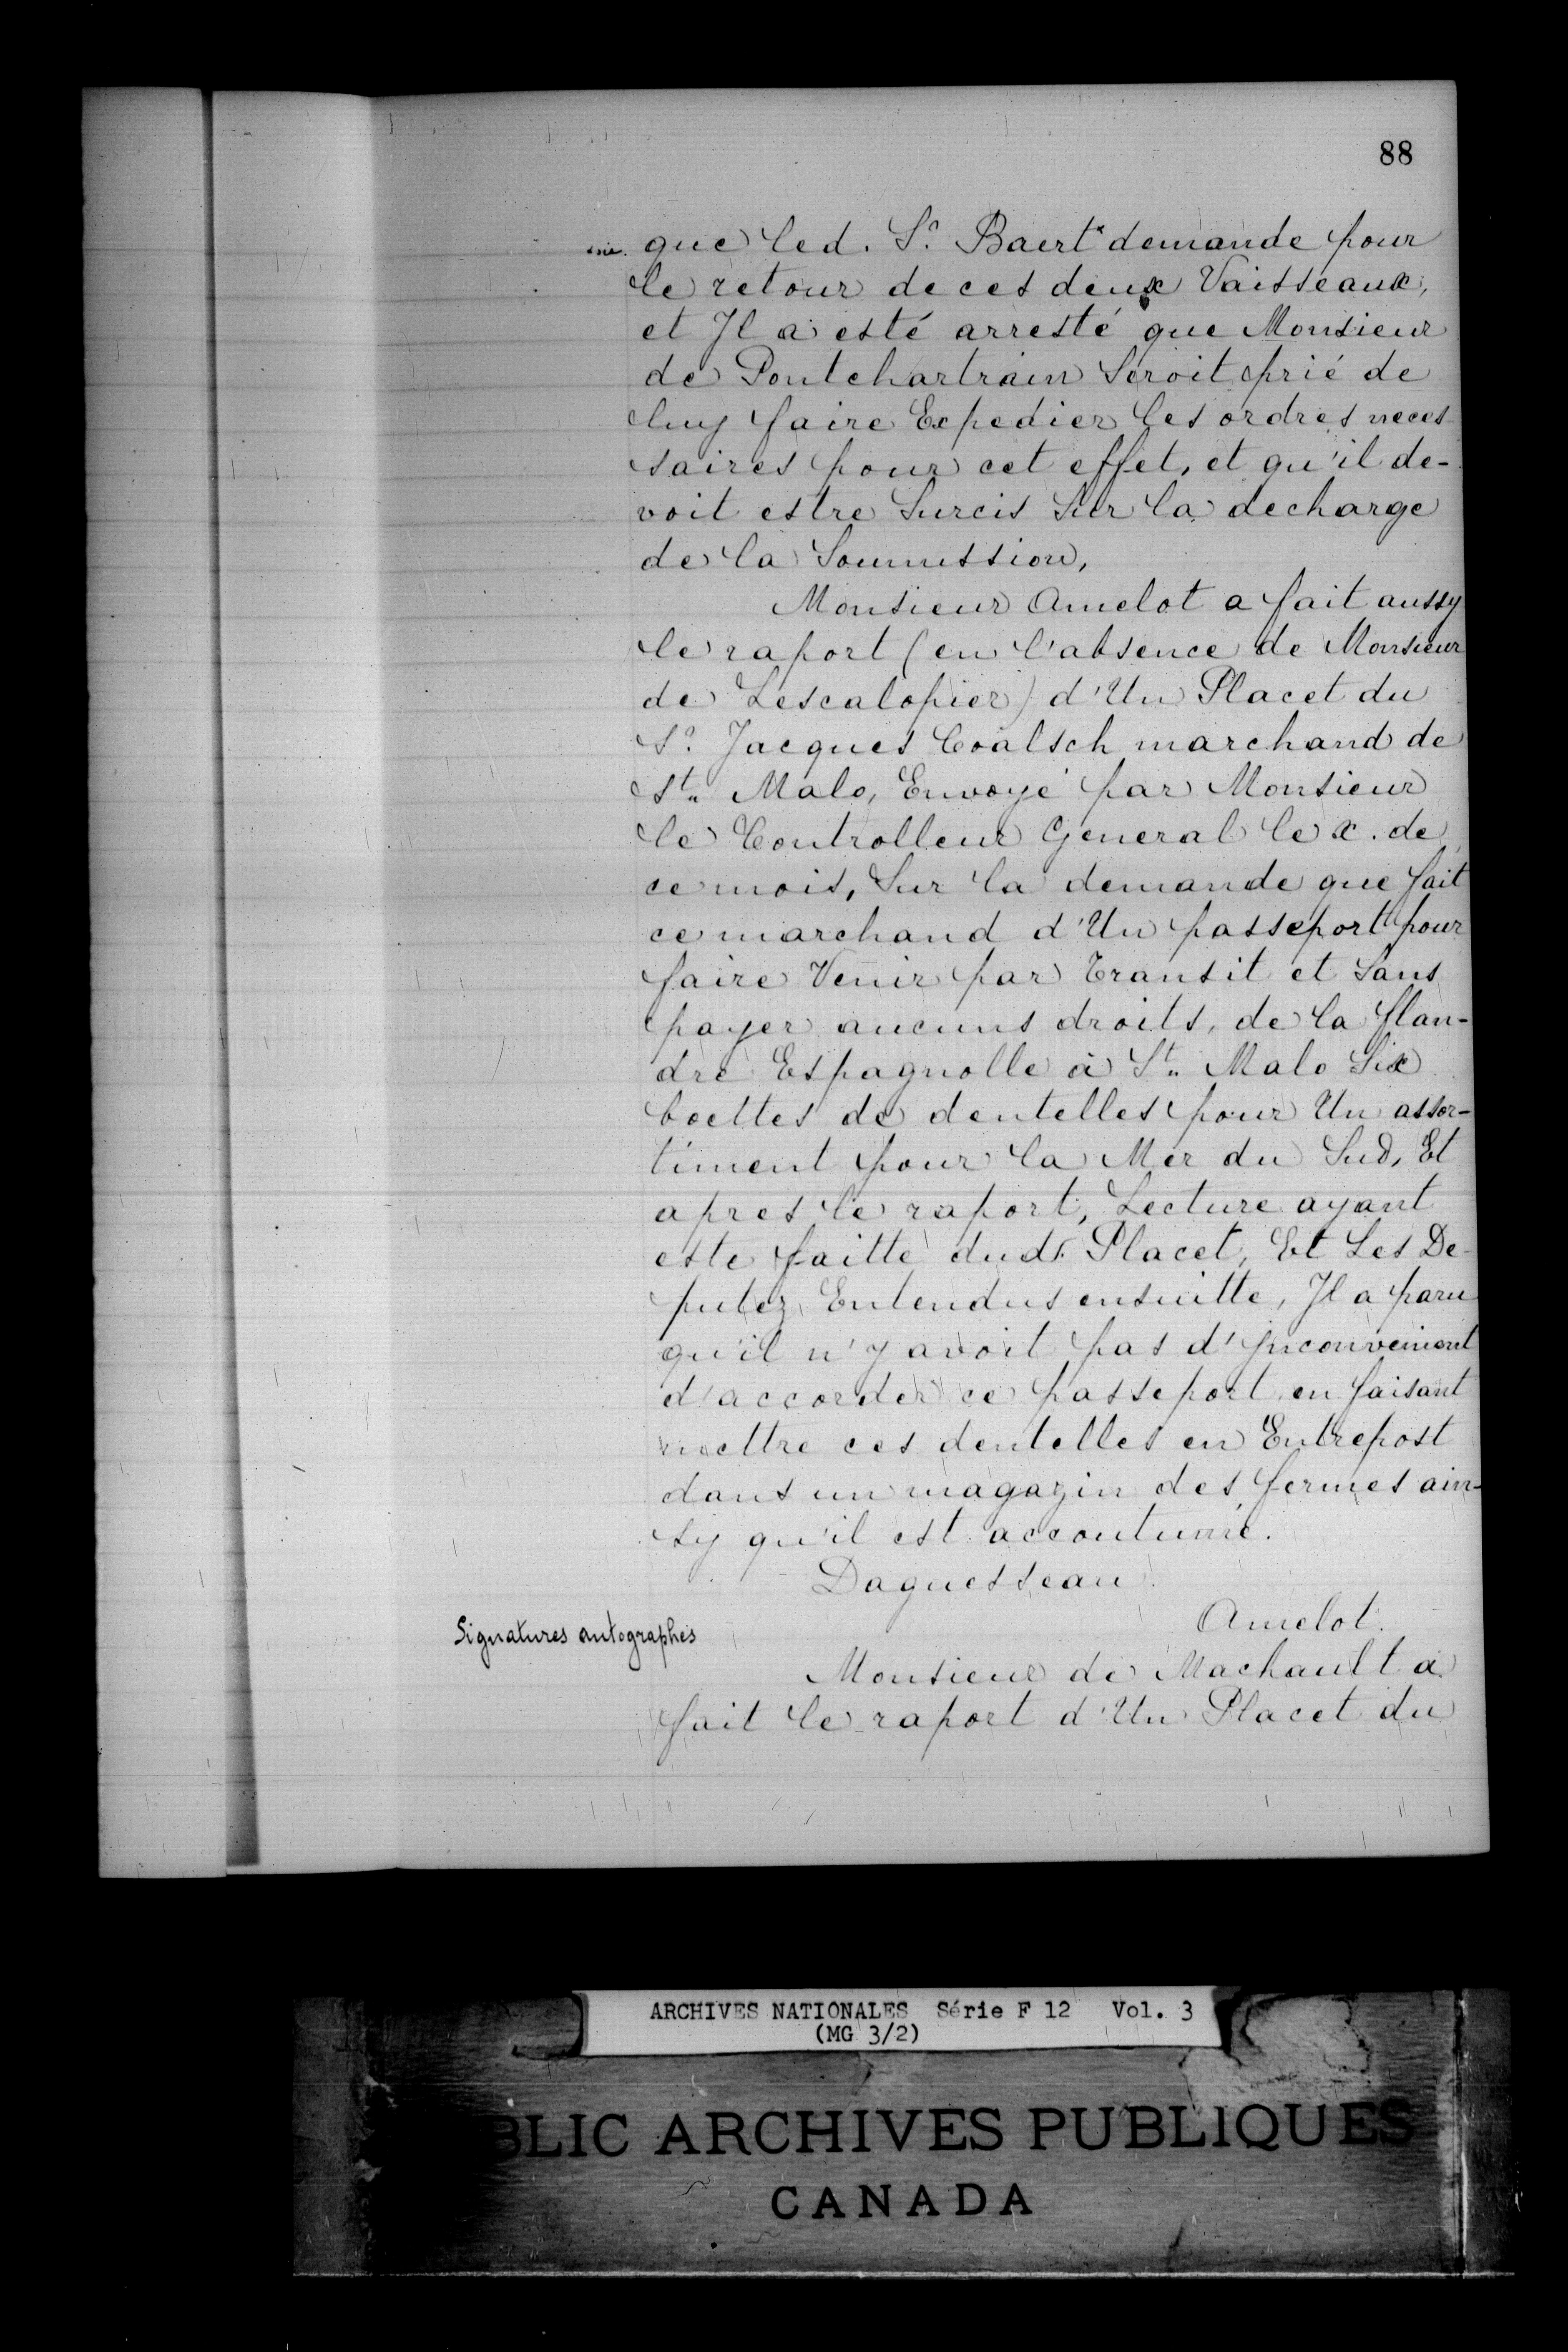 88
que led. S.r Baert* demande pour
le retour de ces deux Vaisseaux,
et Il a esté arresté que Monsieur
de Pontchartrain Seroit prié de
luy faire Expedier les ordres neces
saires pour cet effet, et qu'il de-
voit estre Surcis Sur la decharge
de la Soumission,
Monsieur Amelot a fait aussy
le raport (en l'absence de Monsieur
de Lescalopier) d'Un Placet du
S.r Jacques Coalsch marchand de
St. Malo, Envoyé par Monsieur
le Controlleur General le x. de
ce mois, Sur la demande que fait
ce marchand d'Un passeport pour
faire Venir par Transit et Sans
payer aucuns droits, de la flan-
dre Espagnolle à St. Malo Six
boettes de dentelles pour Un assor-
timent pour la Mer du Sud, Et
apres le raport, Lecture ayant
este faitte dud. Placet, Et Les De-
putez Entendus ensuitte, Il a paru
qu'il n'y avoit pas d'Inconvenient
d'accorder ce passeport en faisant
mettre ces dentelles en Entrepost
dans un magazin des fermes ain-
sy qu'il est accoutumé.
Daguesseau.
Amelot.
Signatures autographes
Monsieur de Machault a
fait le raport d'Un Placet du
ARCHIVES NATIONALES Série F 12 Vol. 3
(MG 3/2)
BLIC ARCHIVES PUBLIQUES
CANADA